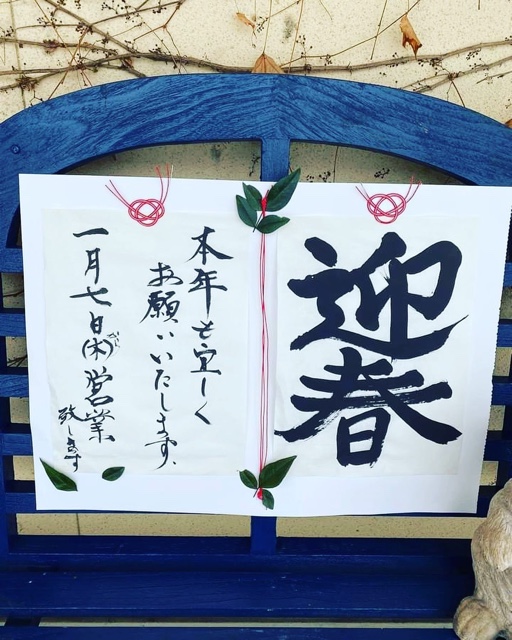 迎春
本年も宜しく
お願いいたします。
一月七日(木)営業
致します